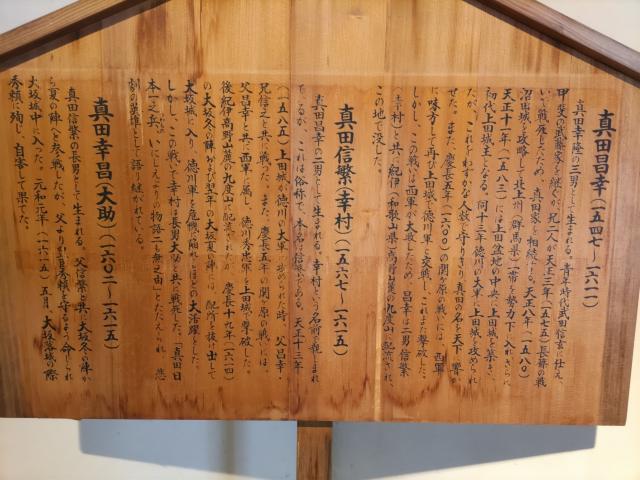 真田昌幸(一五四七～一六一一)
真田幸隆の三男として生まれる。青年時代武田信玄に仕え、
甲斐の武藤家を継ぐが、兄二人が天正三年(一五七五)長篠の戦
いで戦死したため、真田家を相続する。天正八年(一五八〇)
沼田城を攻略して北上州(群馬県)一帯を勢力下に入れ、さらに
天正十一年(一五八三)には上田盆地の中央に上田城を築き、
初代上田城主となる。同十三年徳川の大軍に上田城を攻められ
たが、これをわずかな人数で守りきり真田の名を天下に響か
せた。また、慶長五年(一六〇〇)の関ヶ原の戦いには、西軍
に味方して再び上田城で徳川軍と交戦し、これもまた撃破した。
しかし、この戦いは西軍が大敗したため、昌幸は二男信繁
(幸村)と共に紀伊(和歌山県)高野山麓の九度山に配流され、
この地で没した。
真田信繁(幸村)(一五六七～一六一五)
真田昌幸の二男として生まれる。幸村という名前で親しまれ
ているが、これは俗称で、本名は信繁である。天正十三年
(一五八五)上田城が徳川の大軍に攻められた時、父昌幸・
兄信之と共に戦った。また、慶長五年の関ヶ原の戦いには、
父昌幸と共に西軍に属し、徳川秀忠軍を上田城で撃破した。
後紀伊高野山麓の九度山に配流されたが、慶長十九年(一六一四)
の大坂冬の陣および翌年の大坂夏の陣では、配所を抜け出して
大坂城に入り、徳川軍を危機に陥れるほどの大活躍をした。
しかし、この戦いで幸村は長男大助と共に戦死した。「真田日
本一之兵 いにしえよりの物語ニも無之由」とたたえられ、悲
劇の英雄として語り継がれている。
真田幸昌(大助)(一六〇二～一六一五)
真田信繁の長男として生まれる。父信繁と共に大坂冬の陣か
ら夏の陣へと参戦したが、父より豊臣秀頼を守るよう命じられ
大坂城中に入った。元和元年(一六一五)五月、大坂落城の際
秀頼に殉じ、自害して果てた。